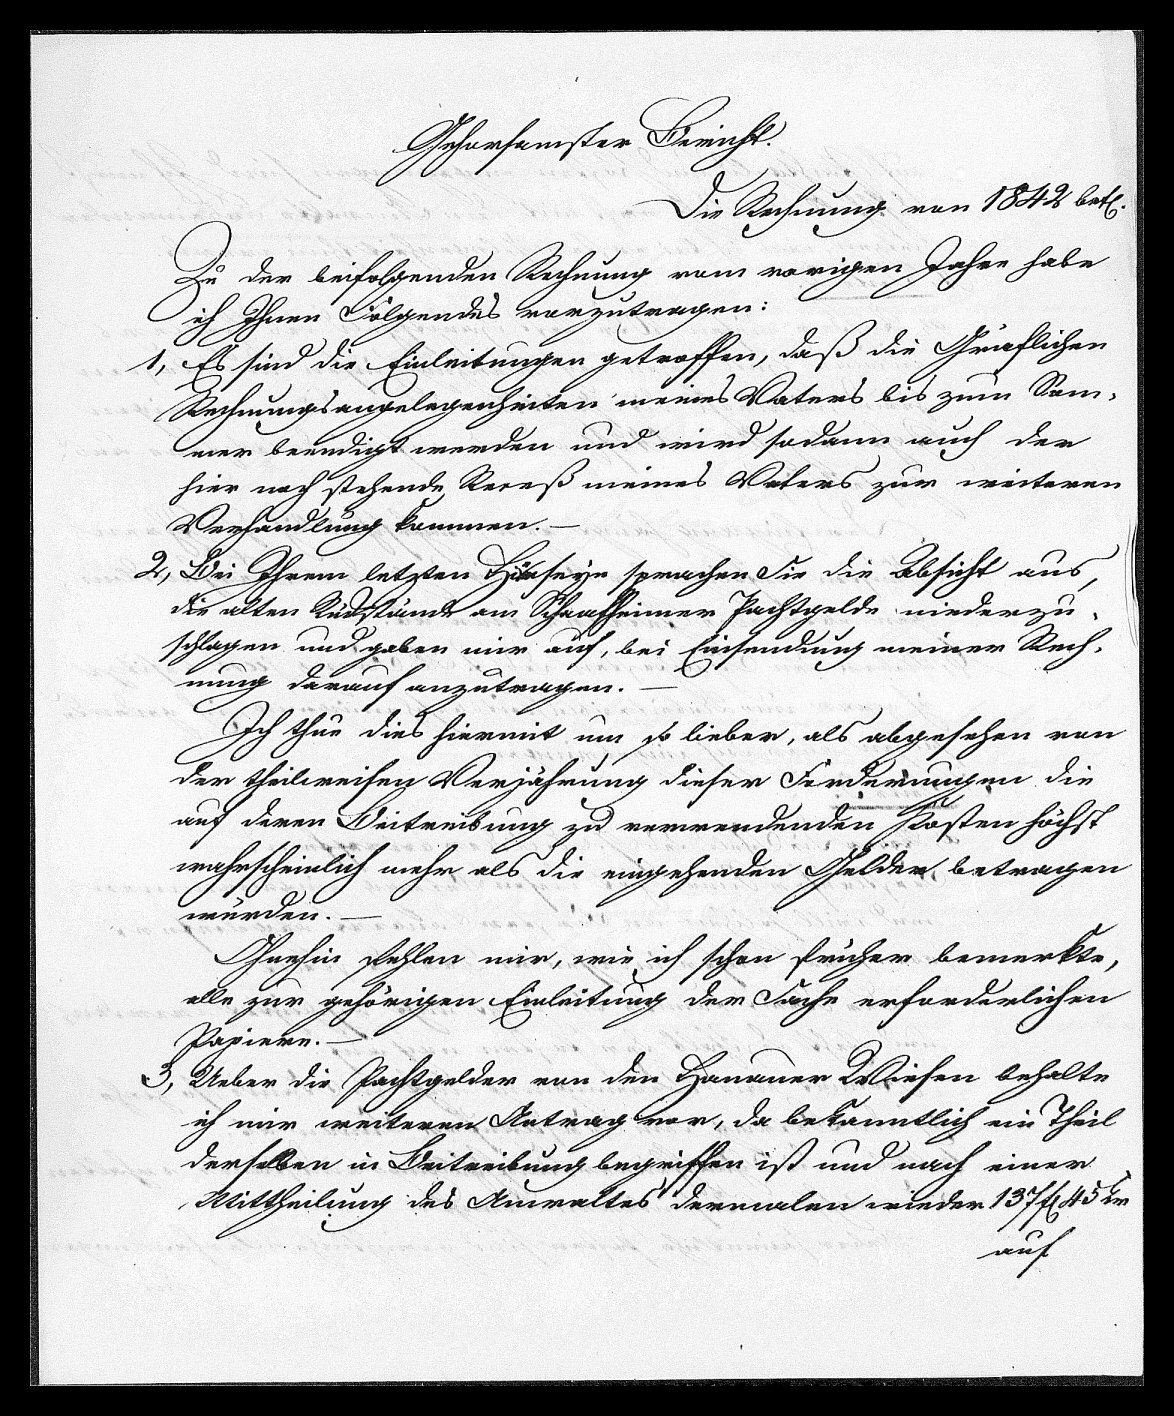 Gehorsamster Bericht.
Die Rechnung von 1842 betf.
Zu der beifolgenden Rechnung vom vorigen Jahre habe
ich Ihnen Folgendes vorzutragen:
1, Es sind die Einleitungen getroffen, daß die Gräflichen
Rechnungsangelegenheiten meines Vaters bis zum Som-
mer beendigt werden und wird sodann auch der
hier noch stehende Receß meines Vaters zur weiteren
Verhandlung kommen. —
2, Bei Ihrem letzten Hierseyn sprachen Sie die Absicht aus,
die alten Rückstände am Schaafheimer Pachtgelde niederzu-
schlagen und gaben mir auf, bei Einsendung meiner Rech-
nung darauf anzutragen. —
Ich thue dies hiermit um so lieber, als abgesehen von
der theilweisen Verjährung dieser Forderungen die
auf deren Beitreibung zu verwendenden Kosten höchst
wahrscheinlich mehr als die eingehenden Gelder betragen
würden. —
Ohnehin fehlen mir, wie ich schon früher bemerkte,
alle zur gehörigen Einleitung der Sache erforderlichen
Papiere. —
3, Ueber die Pachtgelder von den Hanauer Wiesen behalte
ich mir weiteren Antrag vor, da bekanntlich ein Theil
derselben in Beitreibung begriffen ist und nach einer
Mittheilung des Anwaltes dermalen wieder 137 fl 45 kr
auf